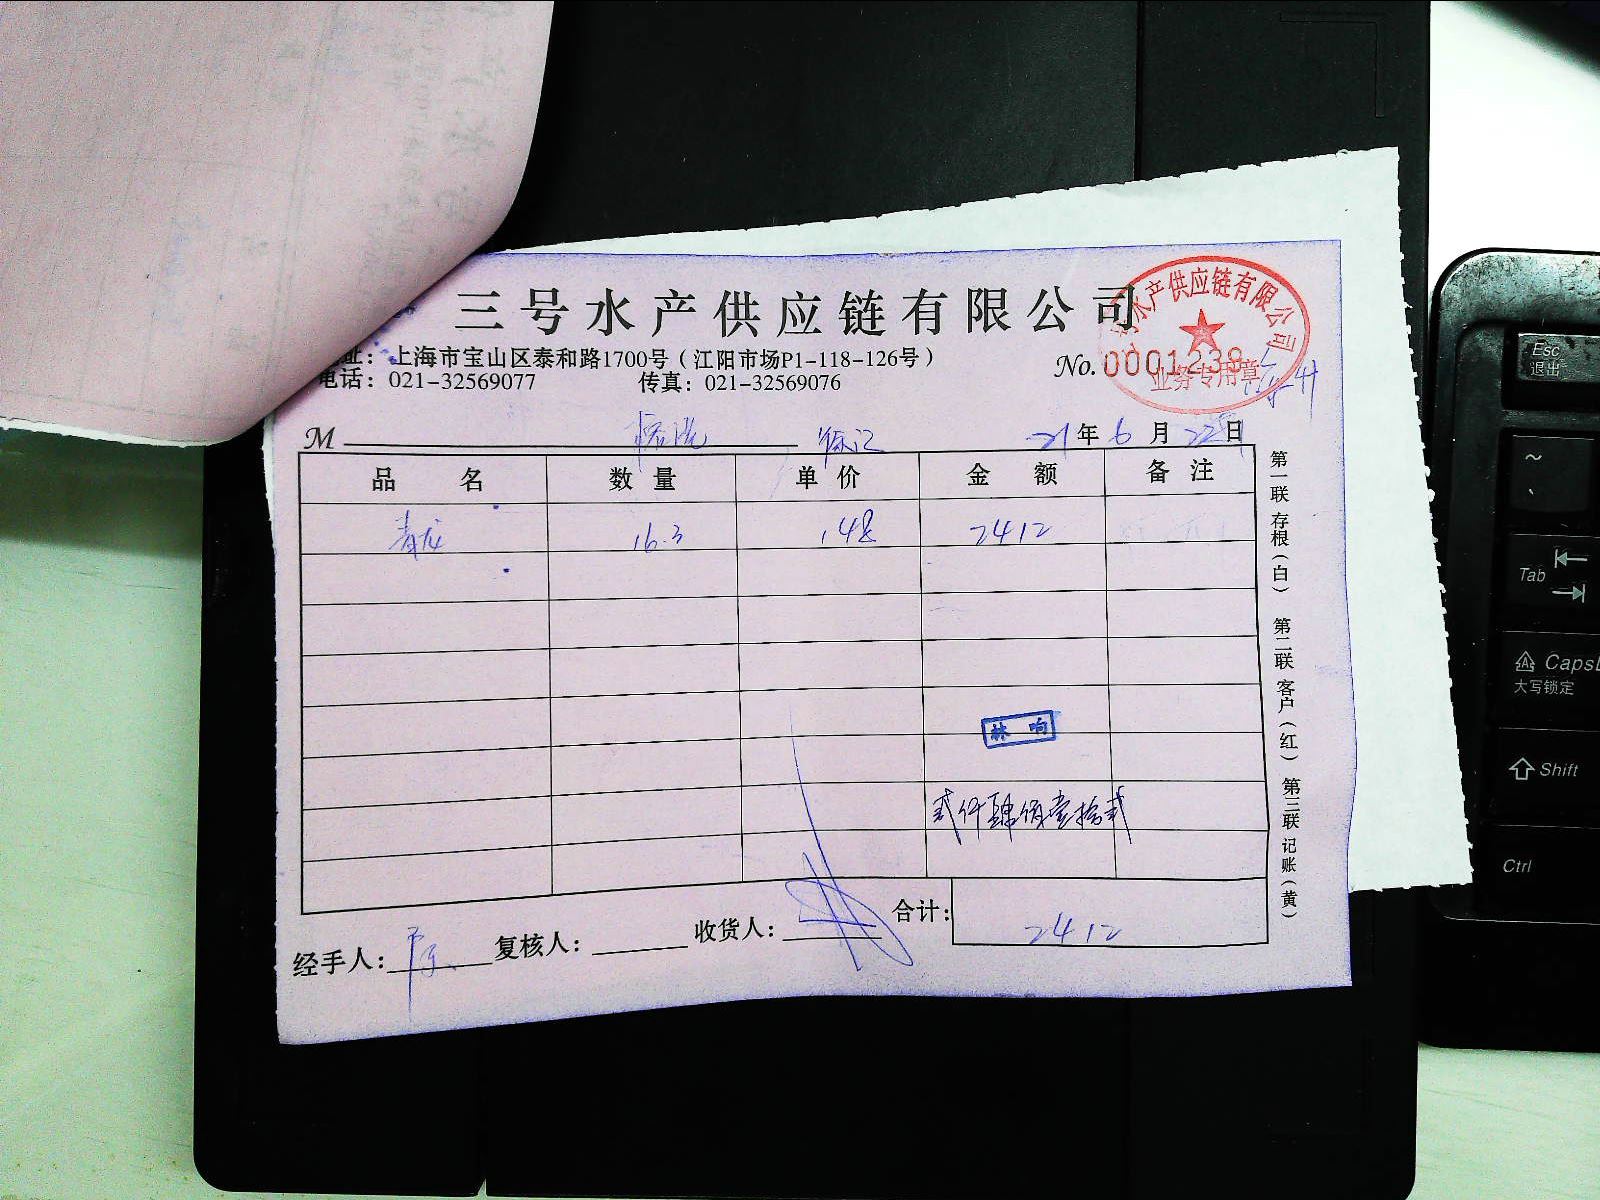 三号水产供应链有限公司
址：上海市宝山区泰和路1700号（江阳市场P1-118-126号）
电话：021-32569077 传真：021-32569076
No.0001239
号水产供应链有限公司
业务专用章
M 徐汇 21年6月22日
品名 数量 单价 金额 备注
青龙 16.3 148 2412
林响
贰仟肆佰壹拾贰
合计：2412
经手人： 复核人： 收货人：
第一联 存根（白） 第二联 客户（红） 第三联 记账（黄）
Esc
退出
~
Tab
Caps
大写锁定
Shift
Ctrl